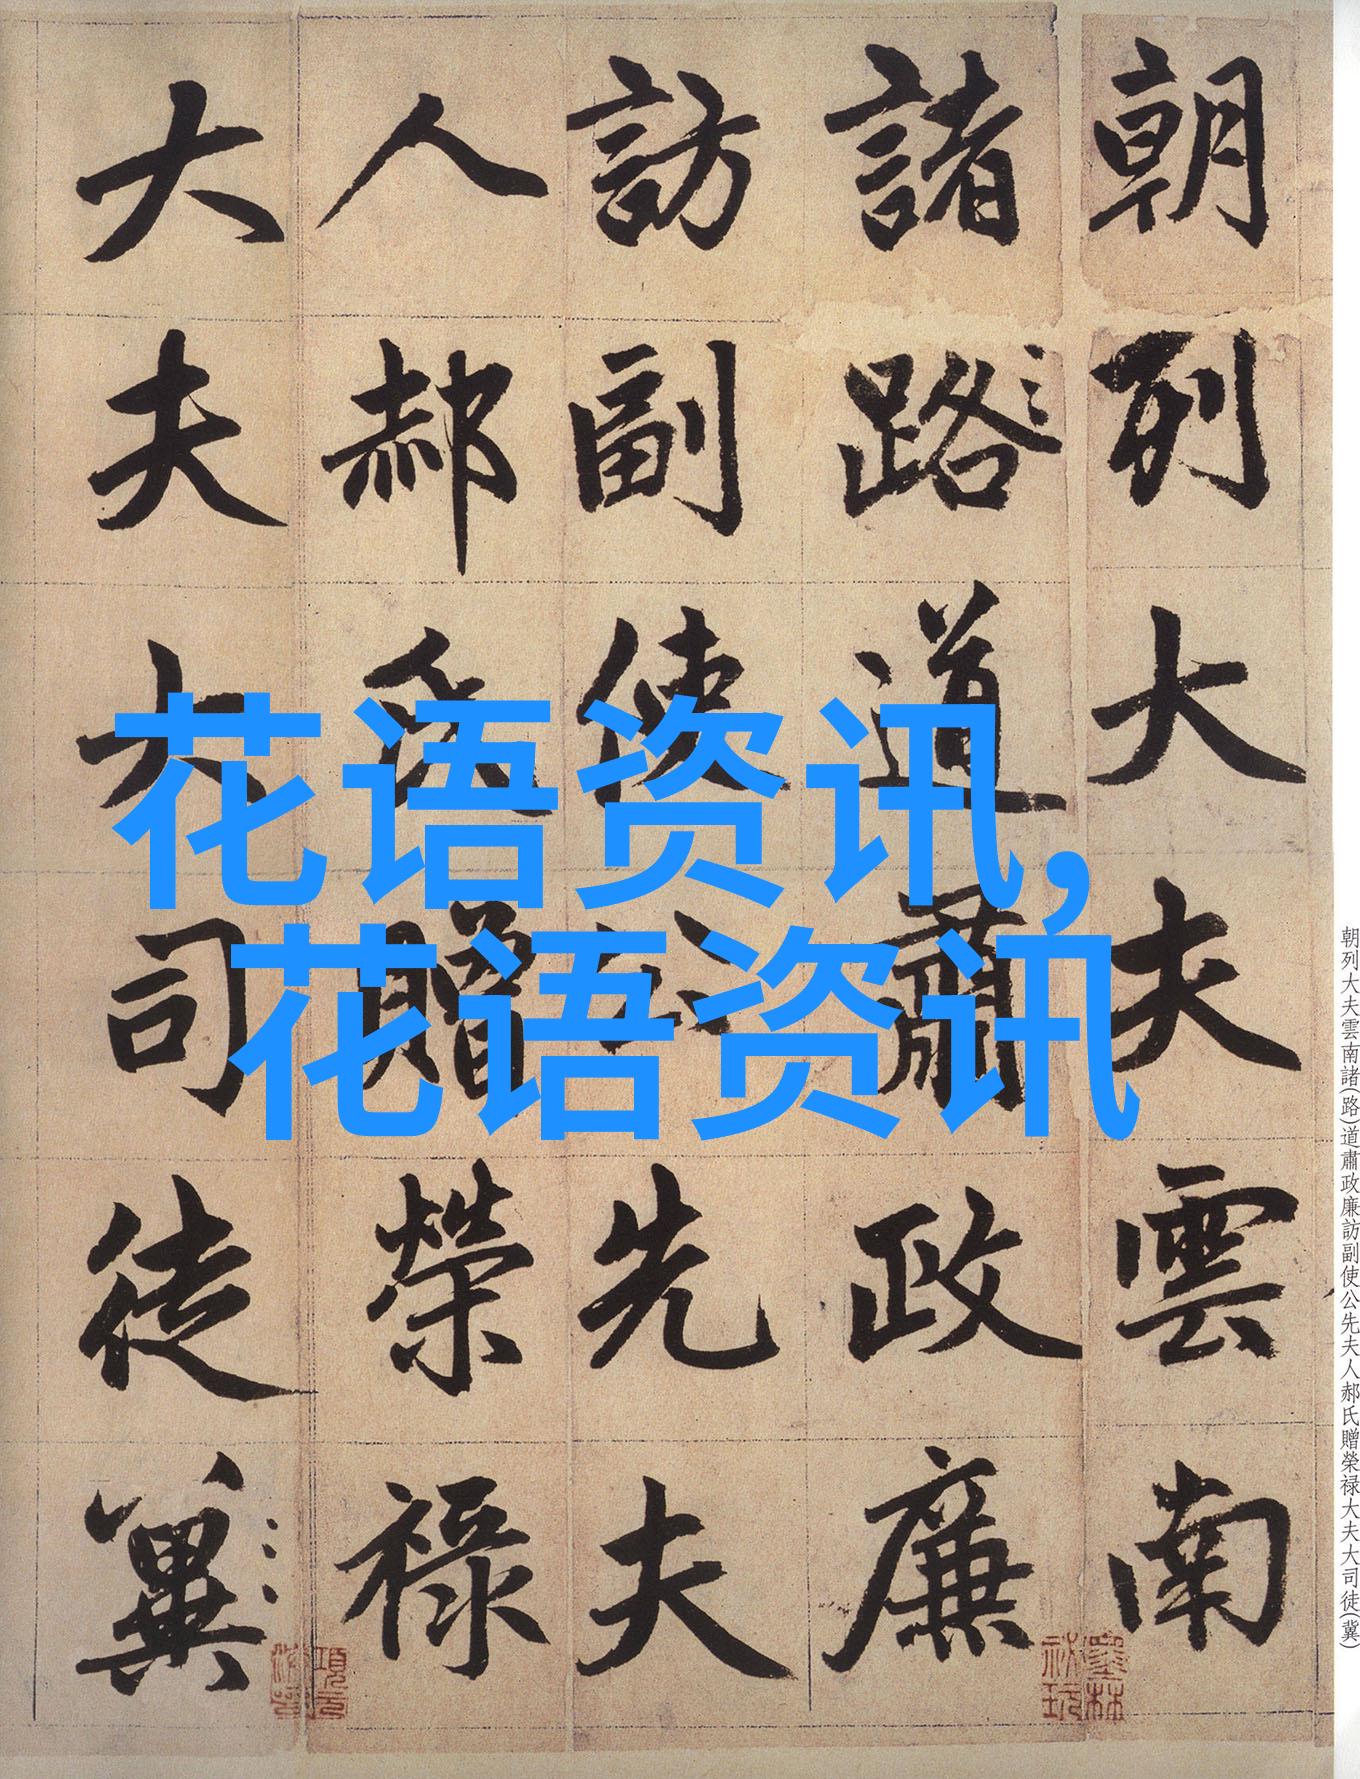 花语资讯,
花语资讯
朝列大夫雲南
諸路道肅政廉
訪副使公先夫
人郝氏贈榮禄
大夫大司徒冀
項元汴印
墨林祕玩
朝列大夫雲南諸(路)道肅政廉訪副使公先夫人郝氏贈榮禄大夫大司徒(冀)